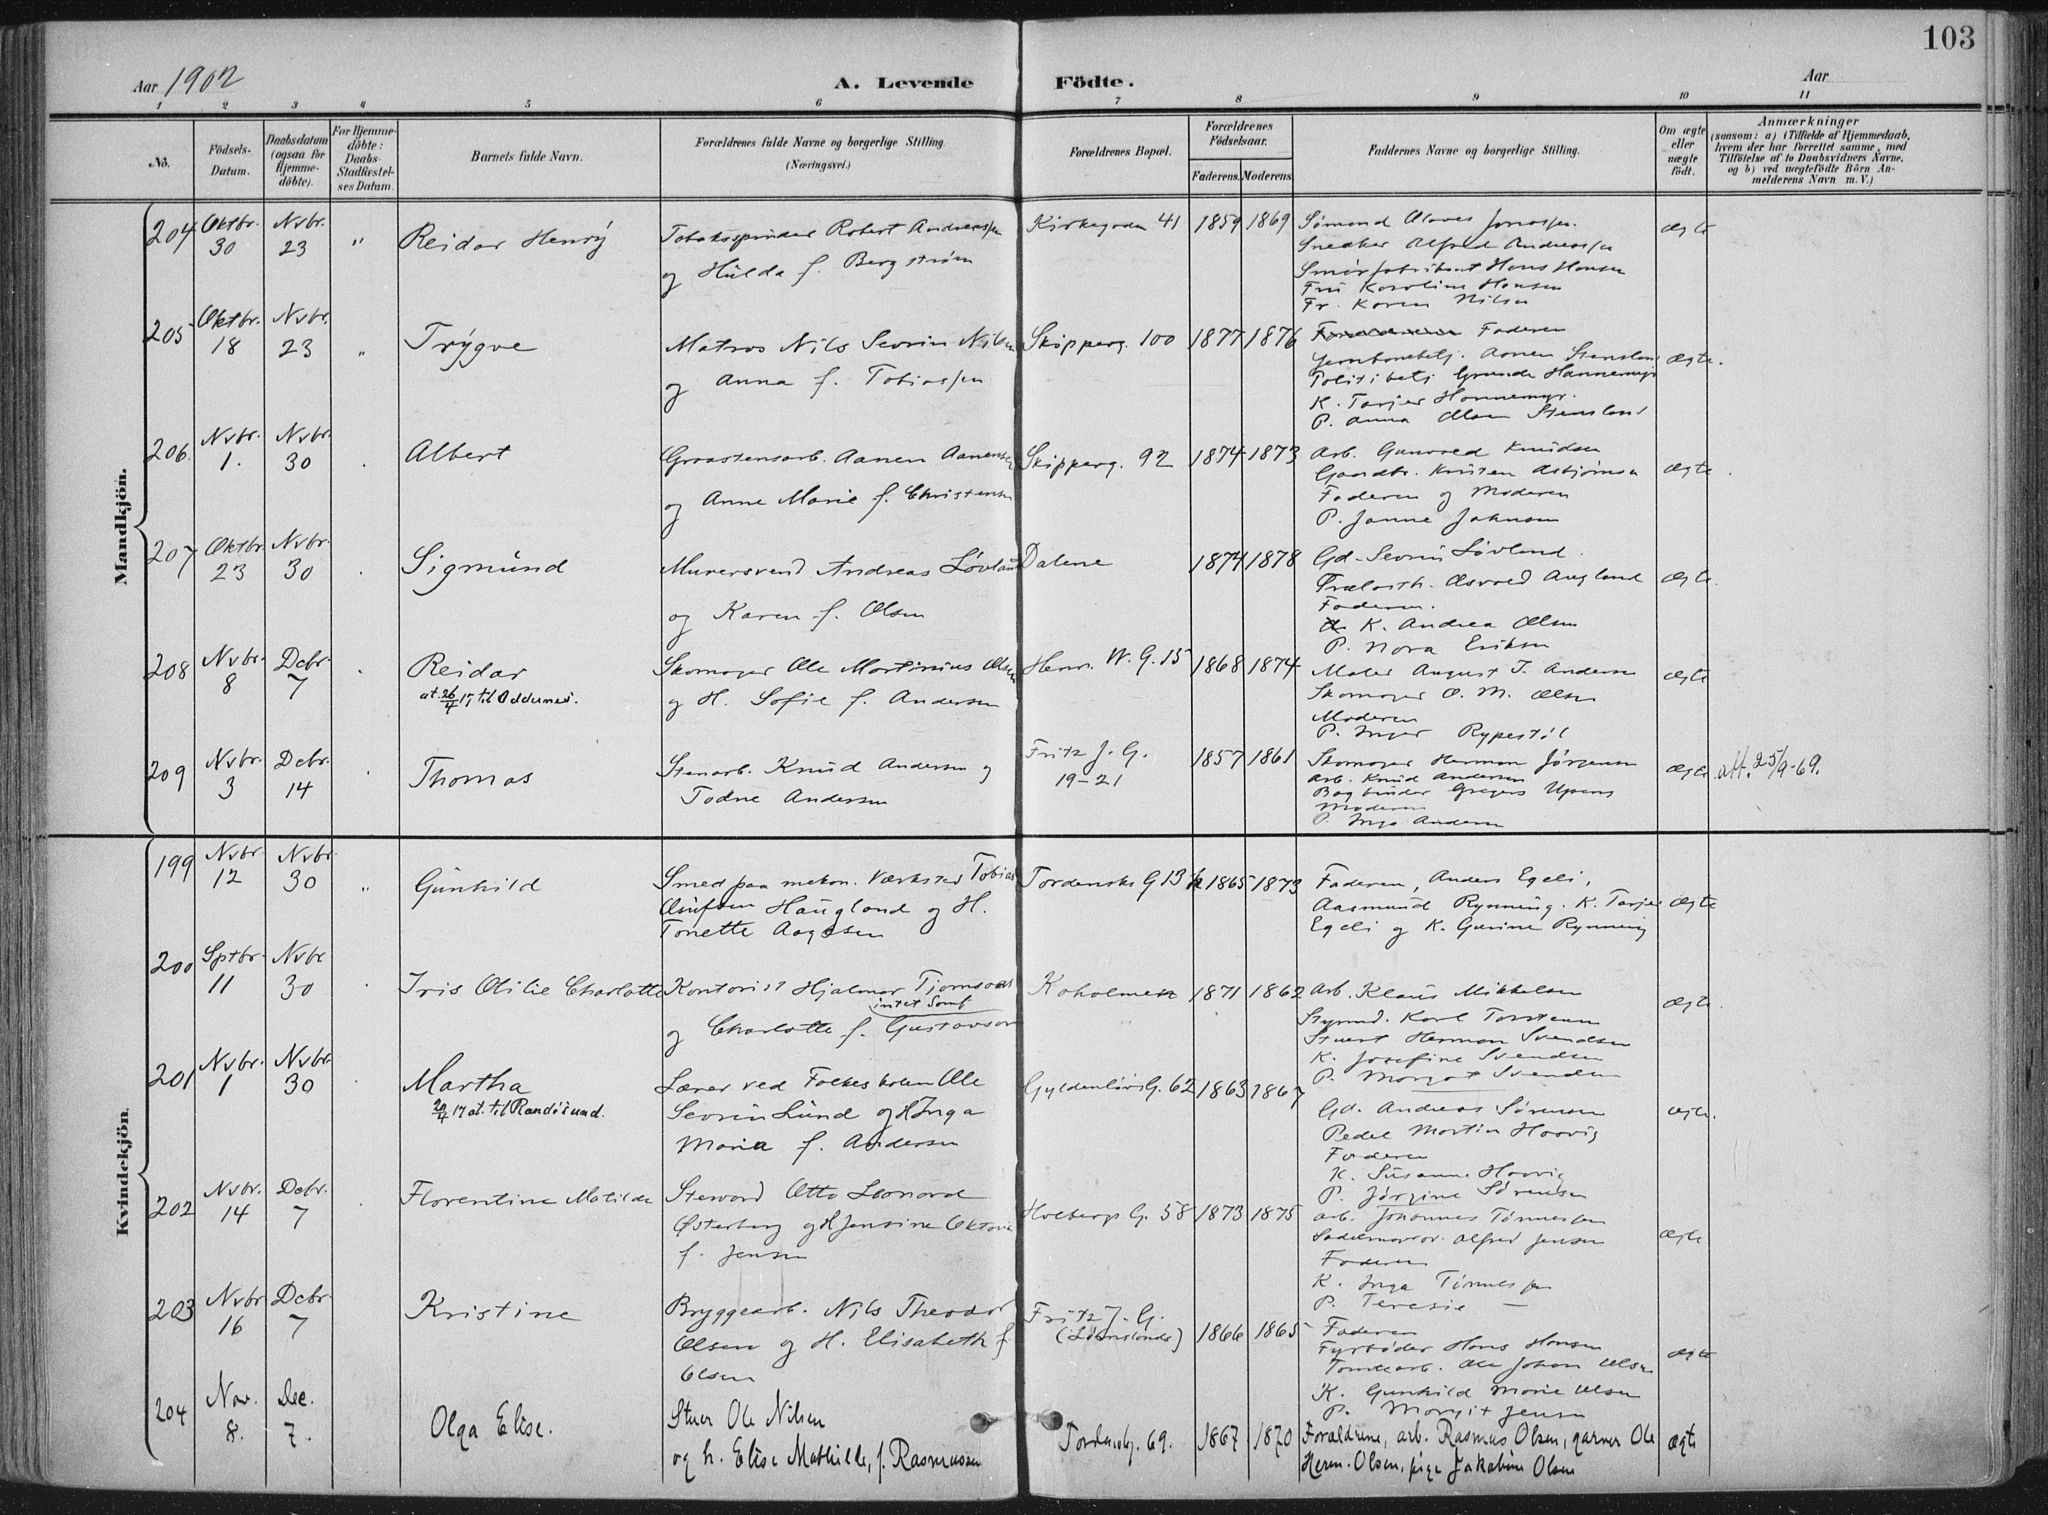 103
Aar 1902
A. Levende Födte.
Aar
1 2 3 4 5 6 7 8 9 10 11
No.
Födsels-Datum.
Daabsdatum (ogsaa for Hjemmedöbte).
For Hjemmedöbte: Daabs-Stadfæstelses Datum.
Barnets fulde Navn.
Forældrenes fulde Navne og borgerlige Stilling. (Næringsvei.)
Forældrenes Bopæl.
Forældrenes Födselsaar.
Faderens. Moderens.
Faddernes Navne og borgerlige Stilling.
Om ægte eller uægte födt.
Anmærkninger
(saasom: a) i Tilfælde af Hjemmedaab, hvem der har forrettet samme, med Tilföielse af to Daabsvidners Navne, og b) ved uægtefödte Börn Anmelderens Navn m. V.)
Mandkjön.
204 Oktbr. 30 Nvbr. 23 " Reidar Henry
Tobaksspinder Robert Andreassen
og Hulda f. Bergstrøm
Kirkegaden 41 1859 1869
Sømand Olaves Jonassen
Snedker Alfred Andreassen
Smørfabrikant Hans Hansen
Fru Karoline Hansen
Fr. Karen Nilsen
ægte
205 Oktbr. 18 Nvbr. 23 " Trygve
Matros Nils Severin Nilsen
og Anna f. Tobiassen
Skipperg. 100 1877 1876
Faderen
Jernbanebetj. Aanen Stensland
Politibetj. Gunde Hannemyr
K. Tarjer Hannemyr.
P. Anna Olsen Stensland
ægte.
206. Nvbr. 1. Nvbr. 30 Albert
Graastensarb. Aanen Aanensen
og Anne Marie f. Christensen
Skipperg. 92 1874 1873
Arb. Gunvald Knudsen
Gaardbr. Kristen Asbjørnsen
Faderen og Moderen
P. Janne Johnsen
ægte
207 Oktbr. 23 Nvbr. 30 Sigmund
Murersvend Andreas Løvland
og Karen f. Olsen
Dalene 1874 1878
Gd. Severin Løvland
Osvald Augland
Faderen.
K. Andrea Olsen
P. Nora Eriksen
ægte
208 Nvbr. 8 Dcbr. 7 Reidar
at. 26/4 17 til Oddernes.
Skomager Ole Martinius Olsen
og H. Sofie f. Andersen
Henr. W. G. 15 1868 1874
Maler August T. Andersen
Skomager O. M. Olsen
Moderen
P. Inger Rypestøl
ægte
209 Nvbr. 3 Dcbr. 14 Thomas
Stenarb. Knud Andersen og
Todne Andersen
Fritz J. G.
19-21
1857 1861
Skomager Herman Jørgensen
Arb. Knud Andersen
Bogbinder Gregers
Moderen
P. Inga Andersen
ægte att. 25/9-69.
Kvindekjön.
199 Nvbr. 12 Nvbr. 30 " Gunhild
Smed paa mekan. Værksted Tobias
Osufsen Haugland og H.
Tonette Aagesen
Tordensks G 13 1865 1873
Faderen, Anders Egeli,
Aasmund Rynning. K. Tarjer
Egeli og K. Gurine Rynning
ægte
200 Sptbr. 11 Nvbr. 30 Iris Otilie Charlotte
Kontorist Hjalmar Tjomsaas
intet Samf
og Charlotte f. Gustavson
Koholmen 1871 1862
Arb. Klaus Mikkelsen
Styrmd. Karl Torstensen
Stuert Herman Svendsen
K. Josefine Svendsen
P. Margot Svendsen
ægte.
201 Nvbr. 1 Nvbr. 30 Martha
20/4 17 at. til Randøsund.
Lærer ved Folkeskolen Ole
Severin Lund og H Inga
Maria f. Andersen
Gyldenløvs G. 62 1863 1867
Gd. Andreas Sørensen
Pedel Martin Haavig
Faderen
K. Susanne Haavig
P. Jørgine Sørensen
ægte.
202 Nvbr. 14 Dcbr. 7 Florentine Matilde
Steward Otto Leonard
Østerberg og H Jensine Oktavia
f. Jensen
Holbergs G. 58 1873 1875
Arb. Johannes Tønnessen
Sadelmager Alfred Jensen
Faderen
K. Inga Tønnessen
P. Teresie —
ægte
203 Nvbr. 16 Dcbr. 7 Kristine
Bryggearb. Nils Theodor
Olsen og H. Elisabeth f.
Olsen
Fritz J. G.
(Lømslands)
1866 1865
Faderen
Fyrbøder Hans Hansen
Tomtearb. Ole Johan Olsen
K. Gunhild Marie Olsen
P. Margit Jensen
ægte
204 Nov. 8. Dec. 7. Olga Elise.
Stuer Ole Nilsen
og h. Elise Mathilde, f. Rasmussen
Tordenskj. 69. 1867 1870
Forældrene, arb. Rasmus Olsen, garver Ole
Herm. Olsen, pige Jakobine Olsen
ægte